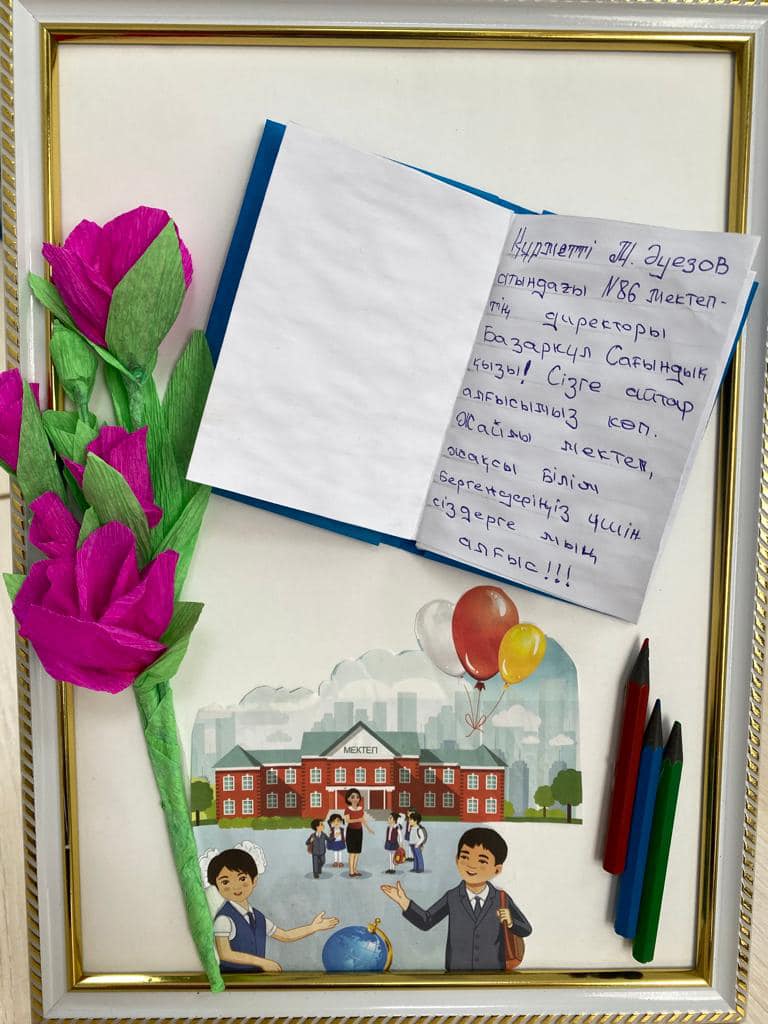 Құрметті М. Әуезов
атындағы N86 мектеп-
тің директоры
Базаркүл Сағындық
қызы! Сізге айтар
алғысымыз көп.
Жайлы мектеп,
жақсы білім
бергендеріңіз үшін
сіздерге мың
алғыс!!!
МЕКТЕП